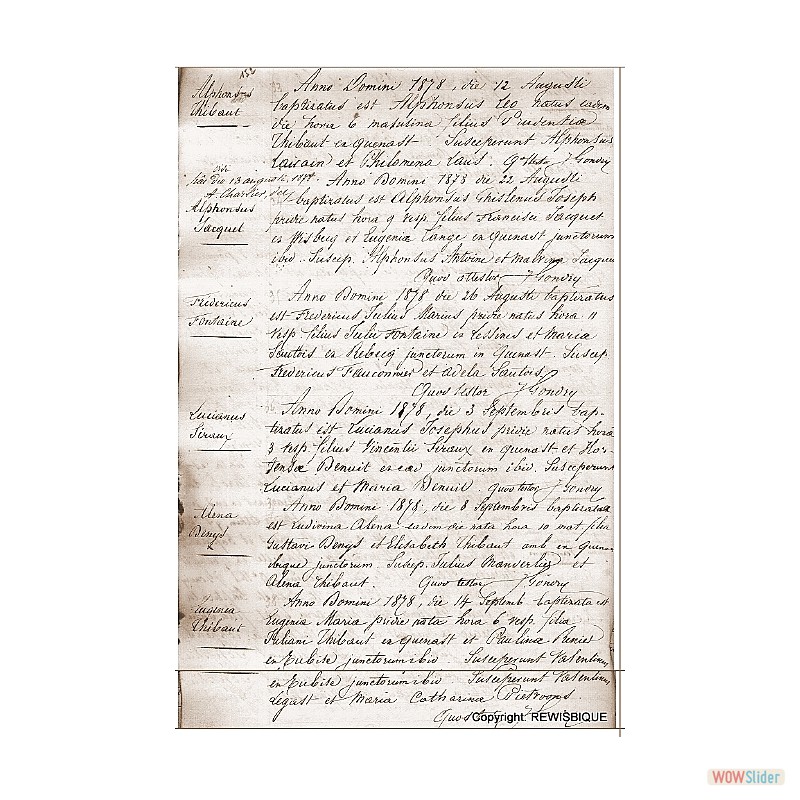 152
Alphonsus
Thibaut
Anno Domini 1878, die 12 Augusti
baptizatus est Alphonsus Leo natus eadem
die hora 6 matutina filius Prudentiæ
Thibaut ex Quenast Susceperunt Alphonsus
et Philomena Laus. J Gondry
die 13 augusti 1878
Alphonsus
Jacquet
Anno Domini 1878 die 22 Augusti
baptizatus est Alphonsus Ghislenus Joseph
pridie natus hora 9 vesp. filius Francisci Jacquet
ex Wisbecq et Eugeniæ Lange ex Quenast junctorum
ibid. Suscep. Alphonsus Antoine et Malvina Jacquet
Quod attestor J Gondry
Fredericus
Fontaine
Anno Domini 1878 die 26 Augusti baptizatus
est Fredericus Julius Marius pridie natus hora 11
vesp. filius Julii Fontaine ex Lessines et Maria
Sautois ex Rebecq junctorum in Quenast. Suscep.
Fredericus Fauconnier et Adela Sautois
Quod testor J Gondry
Lucianus
Siraux
Anno Domini 1878, die 3 Septembris bap-
tizatus est Lucianus Josephus pridie natus hora
3 vesp. filius Vincentii Siraux ex Quenast et Hor-
tensæ Denuit ex ead junctorum ibid. Susceperunt
Lucianus et Maria Denuit Quod testor J Gondry
Alena
Denys
x
Anno Domini 1878, die 8 Septembris baptizata
est Ludivina Alena eadem die nata hora 10 mat. filia
Gustavi Denys et Elisabeth Thibaut amb. ex Quenast
ibique junctorum. Suscep. Julius Manderlier et
Alena Thibaut Quod testor J Gondry
Eugenea
Thibaut
Anno Domini 1878, die 14 Septemb baptizata est
Eugenia Maria pridie nata hora 6 vesp. filia
Juliani Thibaut ex Quenast et Paulina
ex Tubise junctorum ibid. Susceperunt Valentinus
ex Tubise junctorum ibid Susceperunt Valentinus
Légast et Maria Catharina
Quod
Copyright: REWISBIQUE
WOWSlider